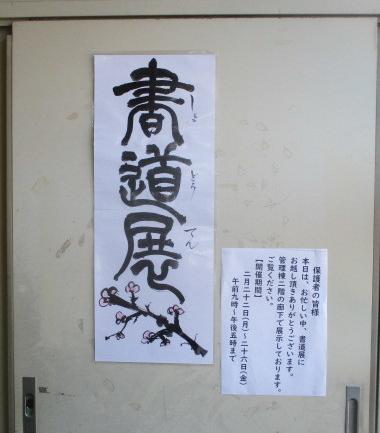 書道展
しょ
どう
てん
保護者の皆様
本日は、お忙しい中、書道展に
お越し頂きありがとうございます。
管理棟二階の廊下で展示しております。
ご覧ください。
【開催期間】
二月二十二日(月)～二十六日(金)
午前九時～午後五時まで